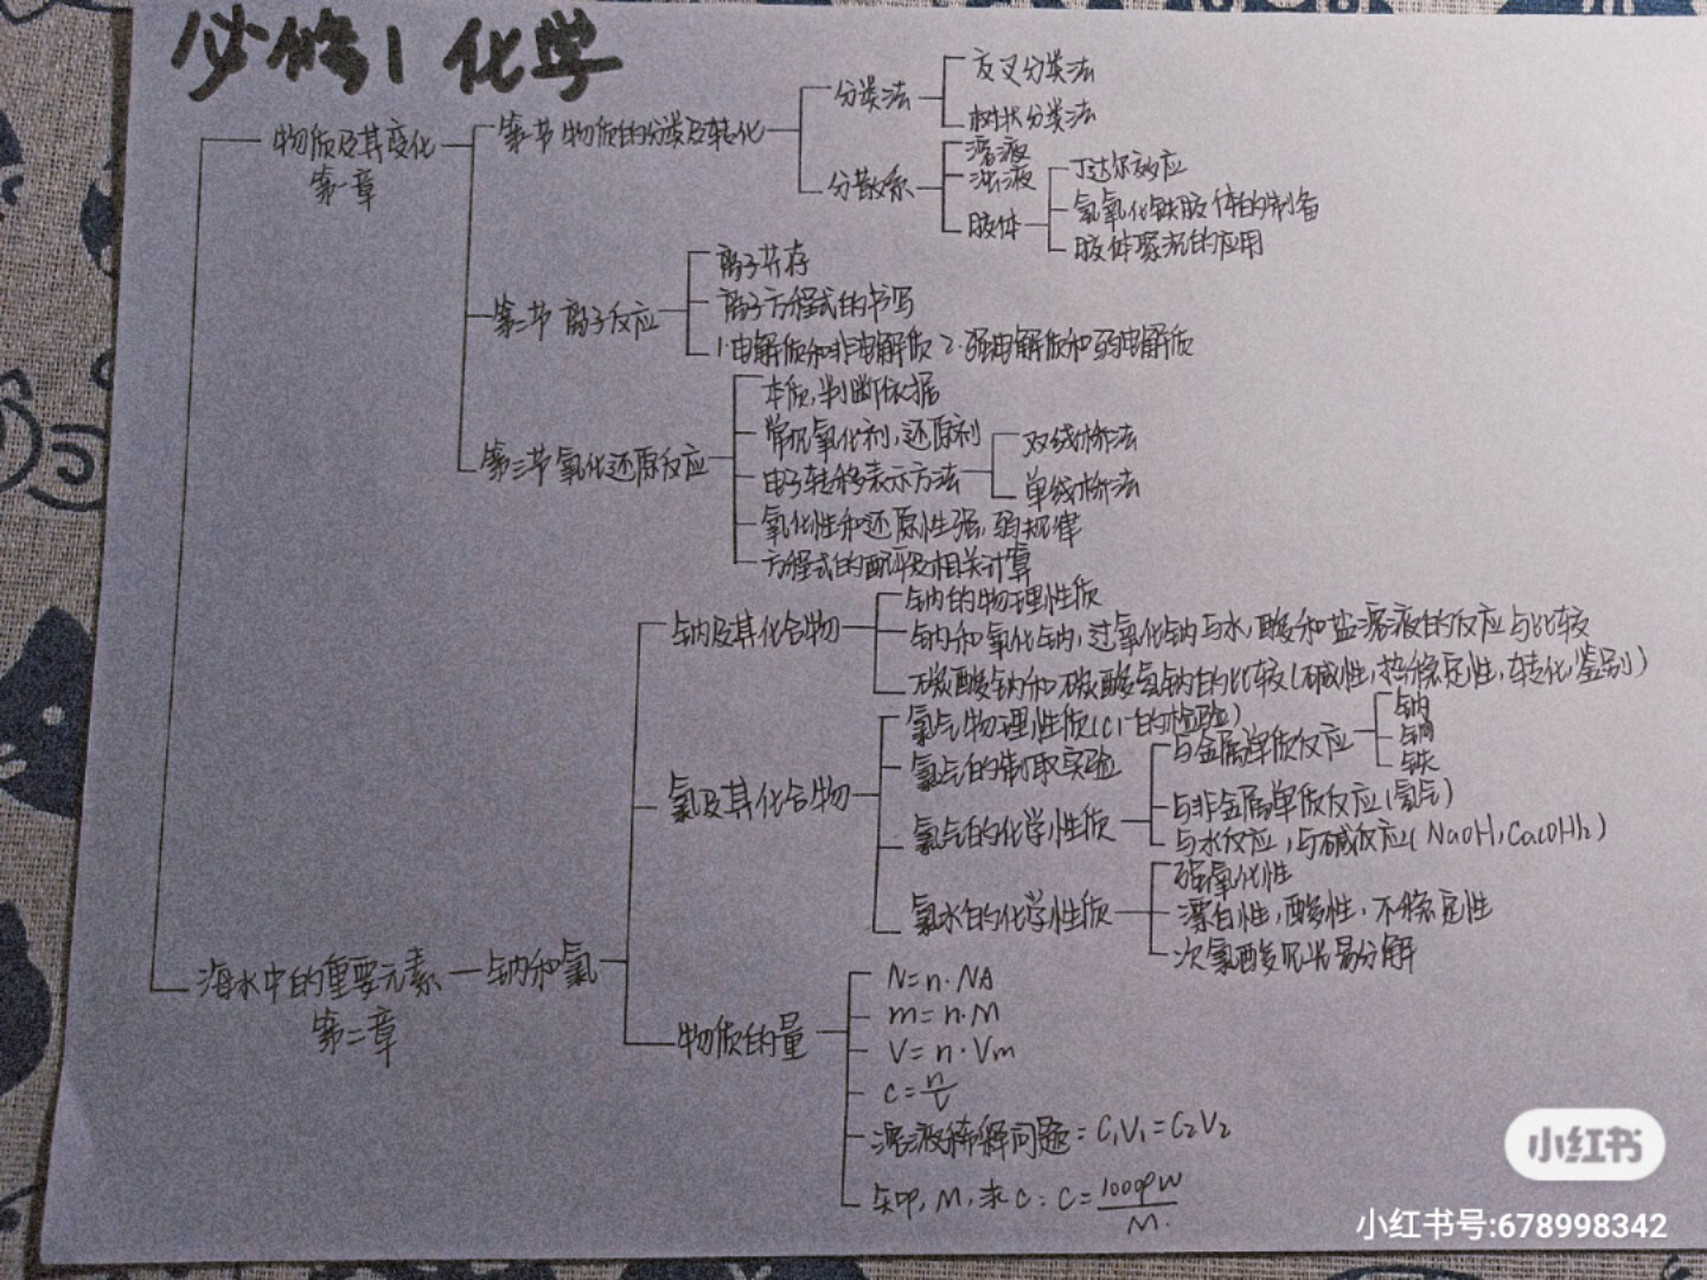 必修1 化学
物质及其变化
第一章
第一节 物质的分类及转化
分类法
交叉分类法
树状分类法
分散系
溶液
浊液
胶体
丁达尔效应
氢氧化铁胶体的制备
胶体聚沉的应用
第二节 离子反应
离子共存
离子方程式的书写
1.电解质和非电解质 2.强电解质和弱电解质
第三节 氧化还原反应
本质,判断依据
常见氧化剂,还原剂
电子转移表示方法
双线桥法
单线桥法
氧化性和还原性强,弱规律
方程式的配平及相关计算
海水中的重要元素
第二章
钠和氯
钠及其化合物
钠的物理性质
钠和氧化钠,过氧化钠与水,酸和盐溶液的反应与比较
碳酸钠和碳酸氢钠的比较(碱性,热稳定性,转化,鉴别)
氯及其化合物
氯气物理性质(Cl⁻的检验)
氯气的制取实验
氯气的化学性质
与金属单质反应
钠
铜
铁
与非金属单质反应(氢气)
与水反应,与碱反应(NaOH,Ca(OH)₂)
氯水的化学性质
强氧化性
漂白性,酸性,不稳定性
次氯酸见光易分解
物质的量
N=n·NA
m=n·M
V=n·Vm
c=n/V
溶液稀释问题:C₁V₁=C₂V₂
知ρ,M,求C:C=1000ρW/M.
小红书
小红书号:678998342